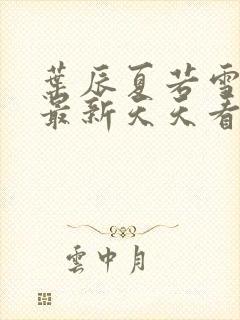 葉辰夏若雪
最新天天看
雲中月